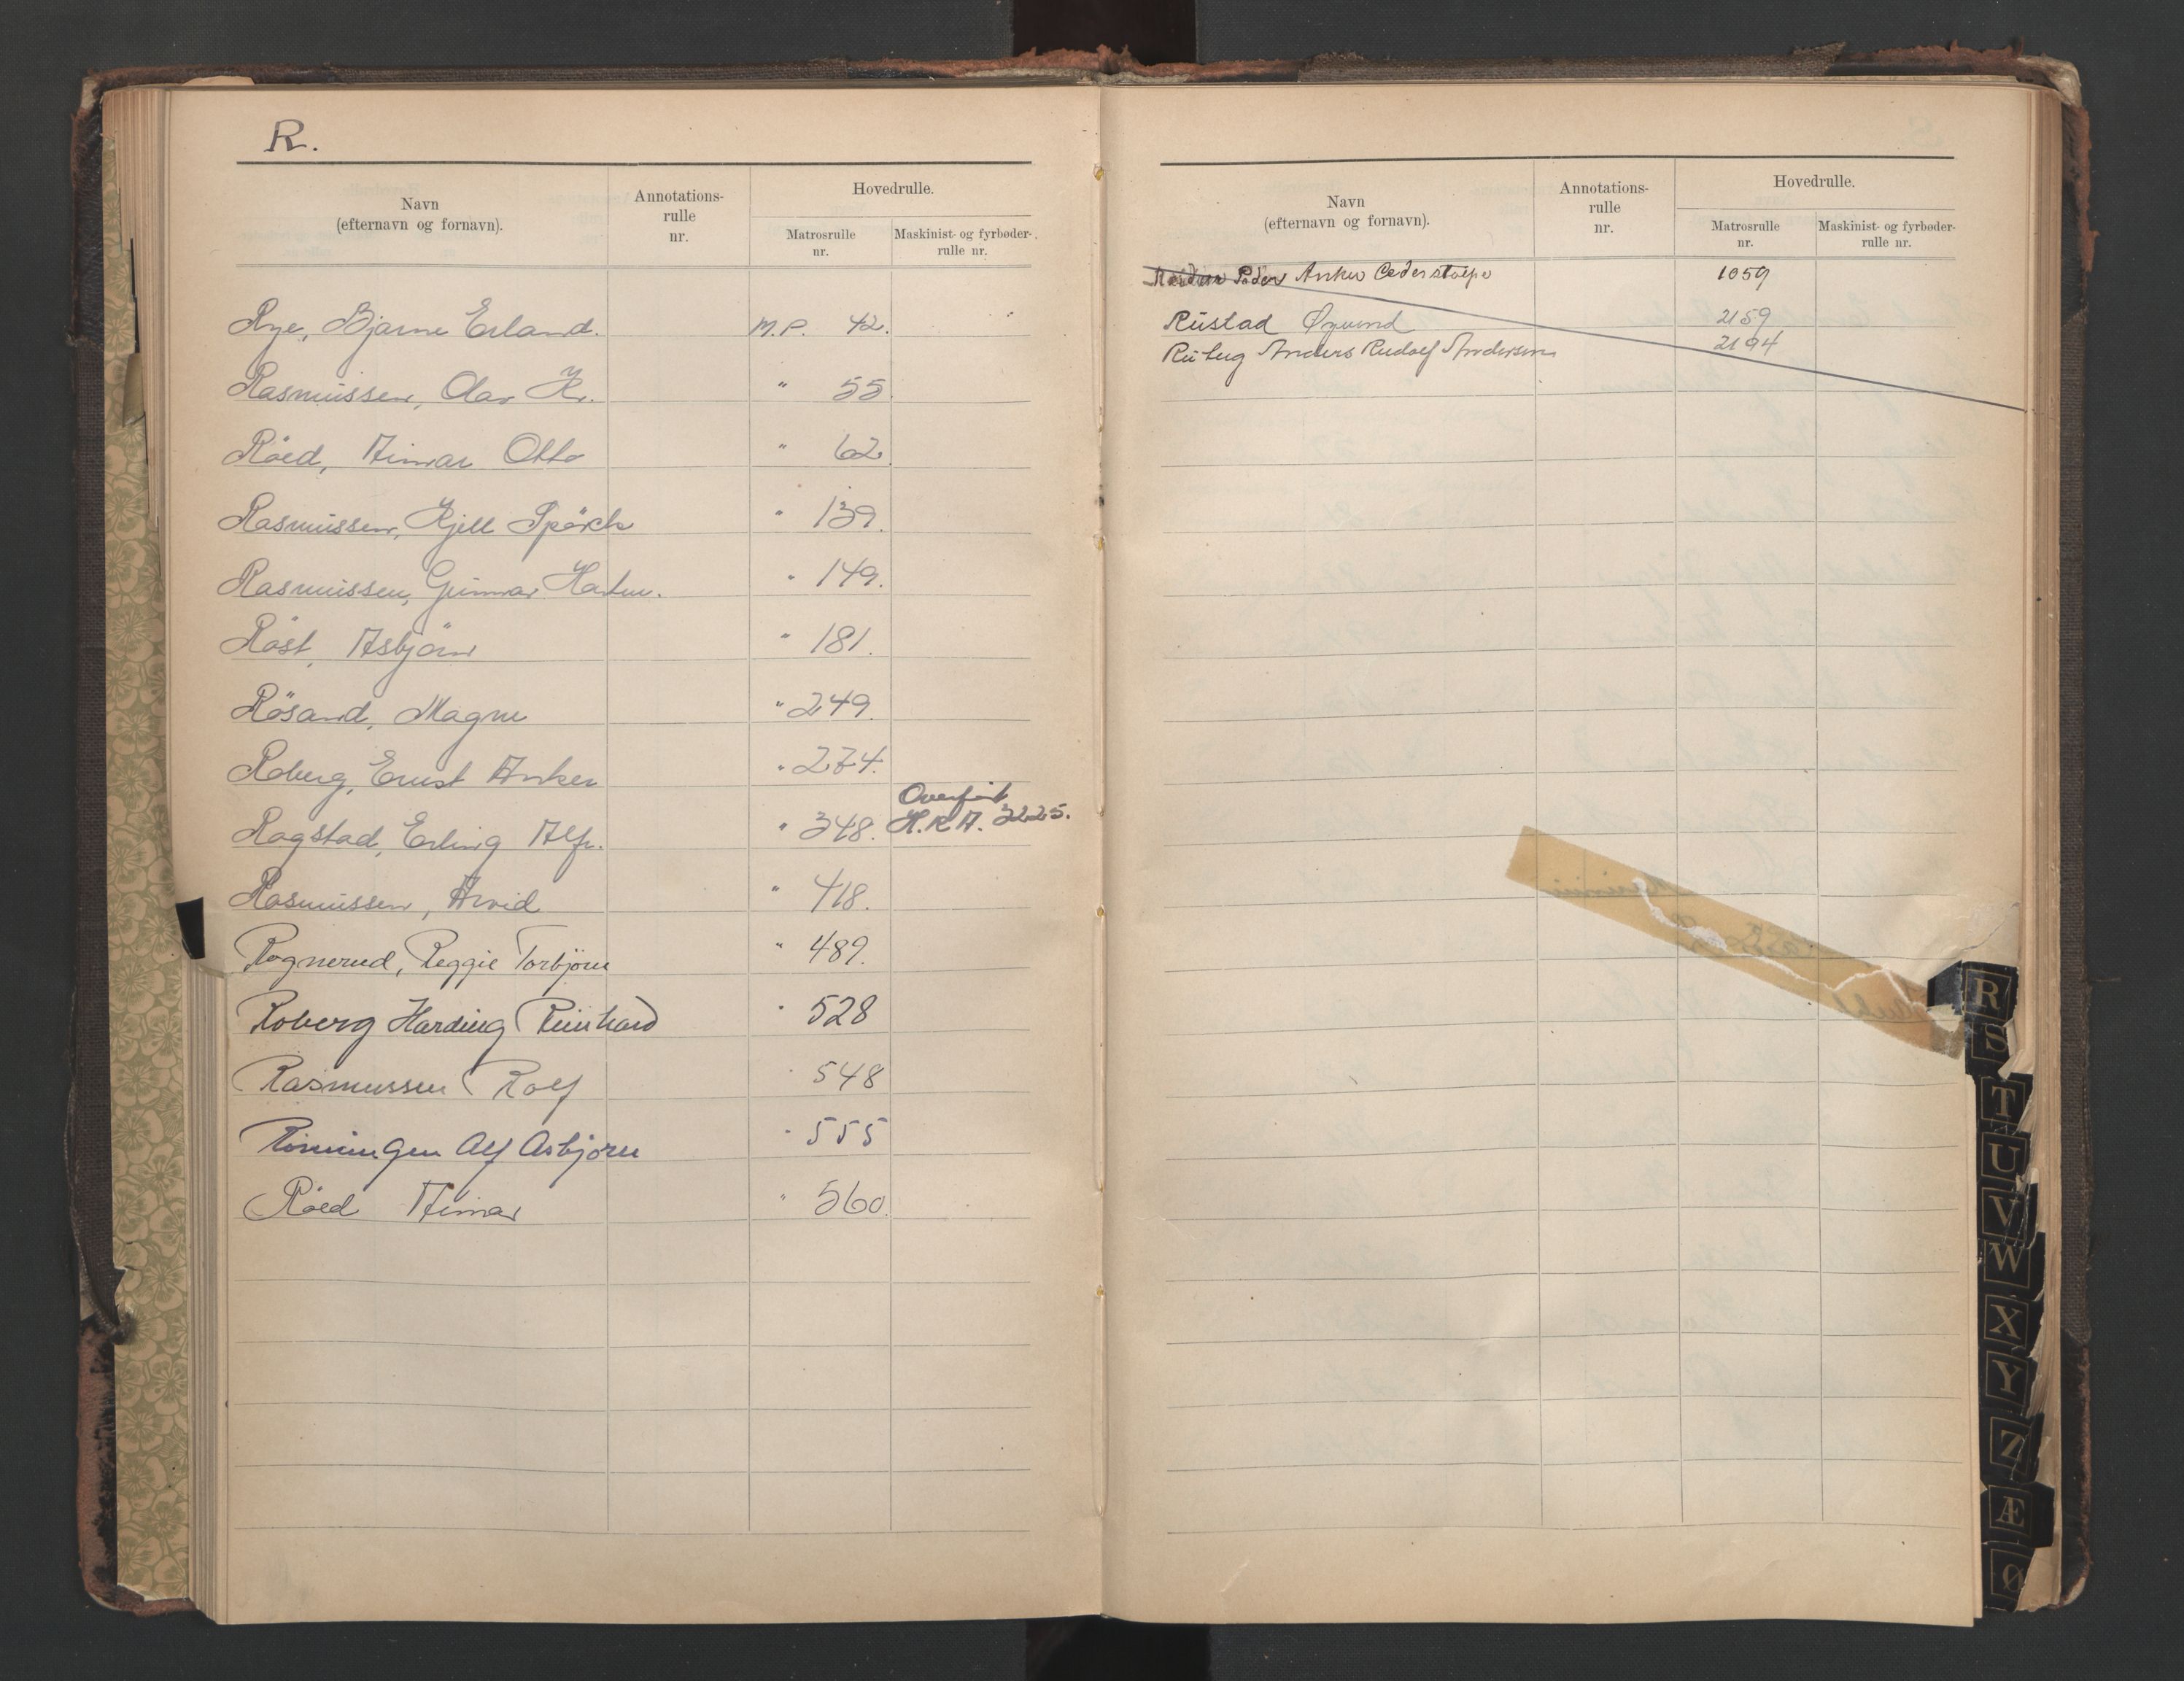 R.
Navn
(efternavn og fornavn).
Annotations-
rulle
nr.
Hovedrulle.
Matrosrulle
nr.
Maskinist- og fyrbøder-
rulle nr.
Rye, Bjarne Erland. M.P. 42.
Rasmussen, Olav Kr. " 55.
Röed, Aimar Otto " 62.
Rasmussen, Kjell Spörck " 139.
Rasmussen, Gunnar Hartm. " 149.
Röst, Asbjörn " 181.
Rösand, Magne " 249.
Roberg, Ernst Anker " 274.
Rogstad, Erling Alfr. " 348. Overført
H.R.A. 3225.
Rasmussen, Arvid " 418.
Rognerud, Reggie Torbjörn " 489.
Roberg Harding Reinhard " 528
Rasmussen Rolf " 548
Rönningen Alf Asbjörn " 555
Röed Aimar " 560.
Navn
(efternavn og fornavn).
Annotations-
rulle
nr.
Hovedrulle.
Matrosrulle
nr.
Maskinist- og fyrbøder-
rulle nr.
Peder Anker Cederstolpe 1059
Rustad Øyvind 2159
Anders Rudolf Andersen 2194
R
S
T
U
V
W
X
Y
Z
Æ
Ø